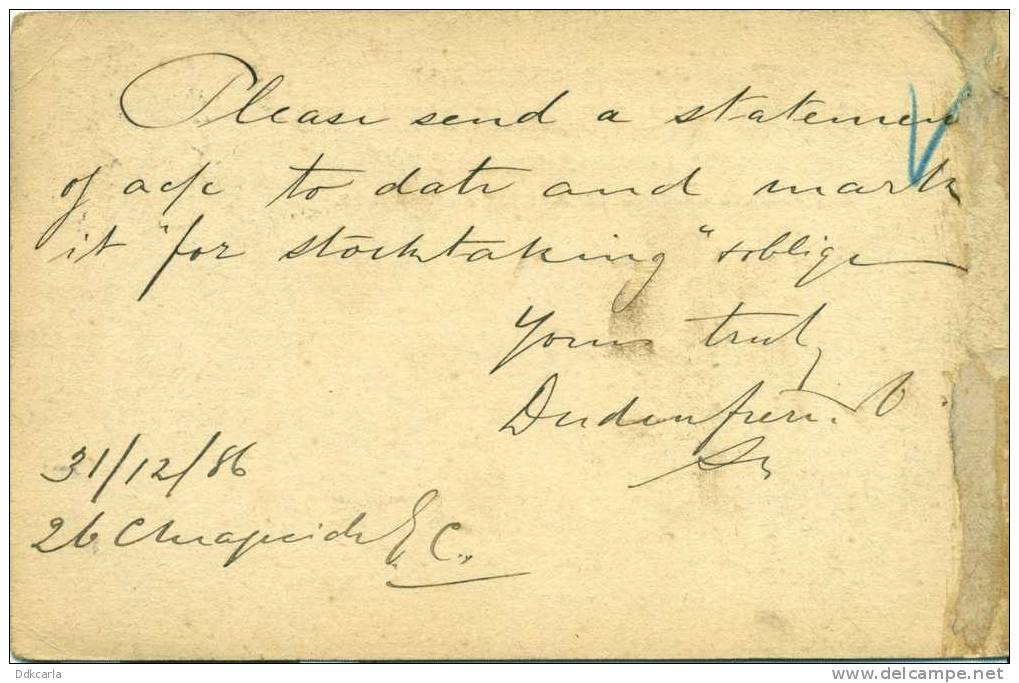 Please send a statemen
of a/c to date and mark
it "for stocktaking" & oblige
Yours truly
31/12/86
26 Cheapside E.C.
Ddkcarla
www.delcampe.net